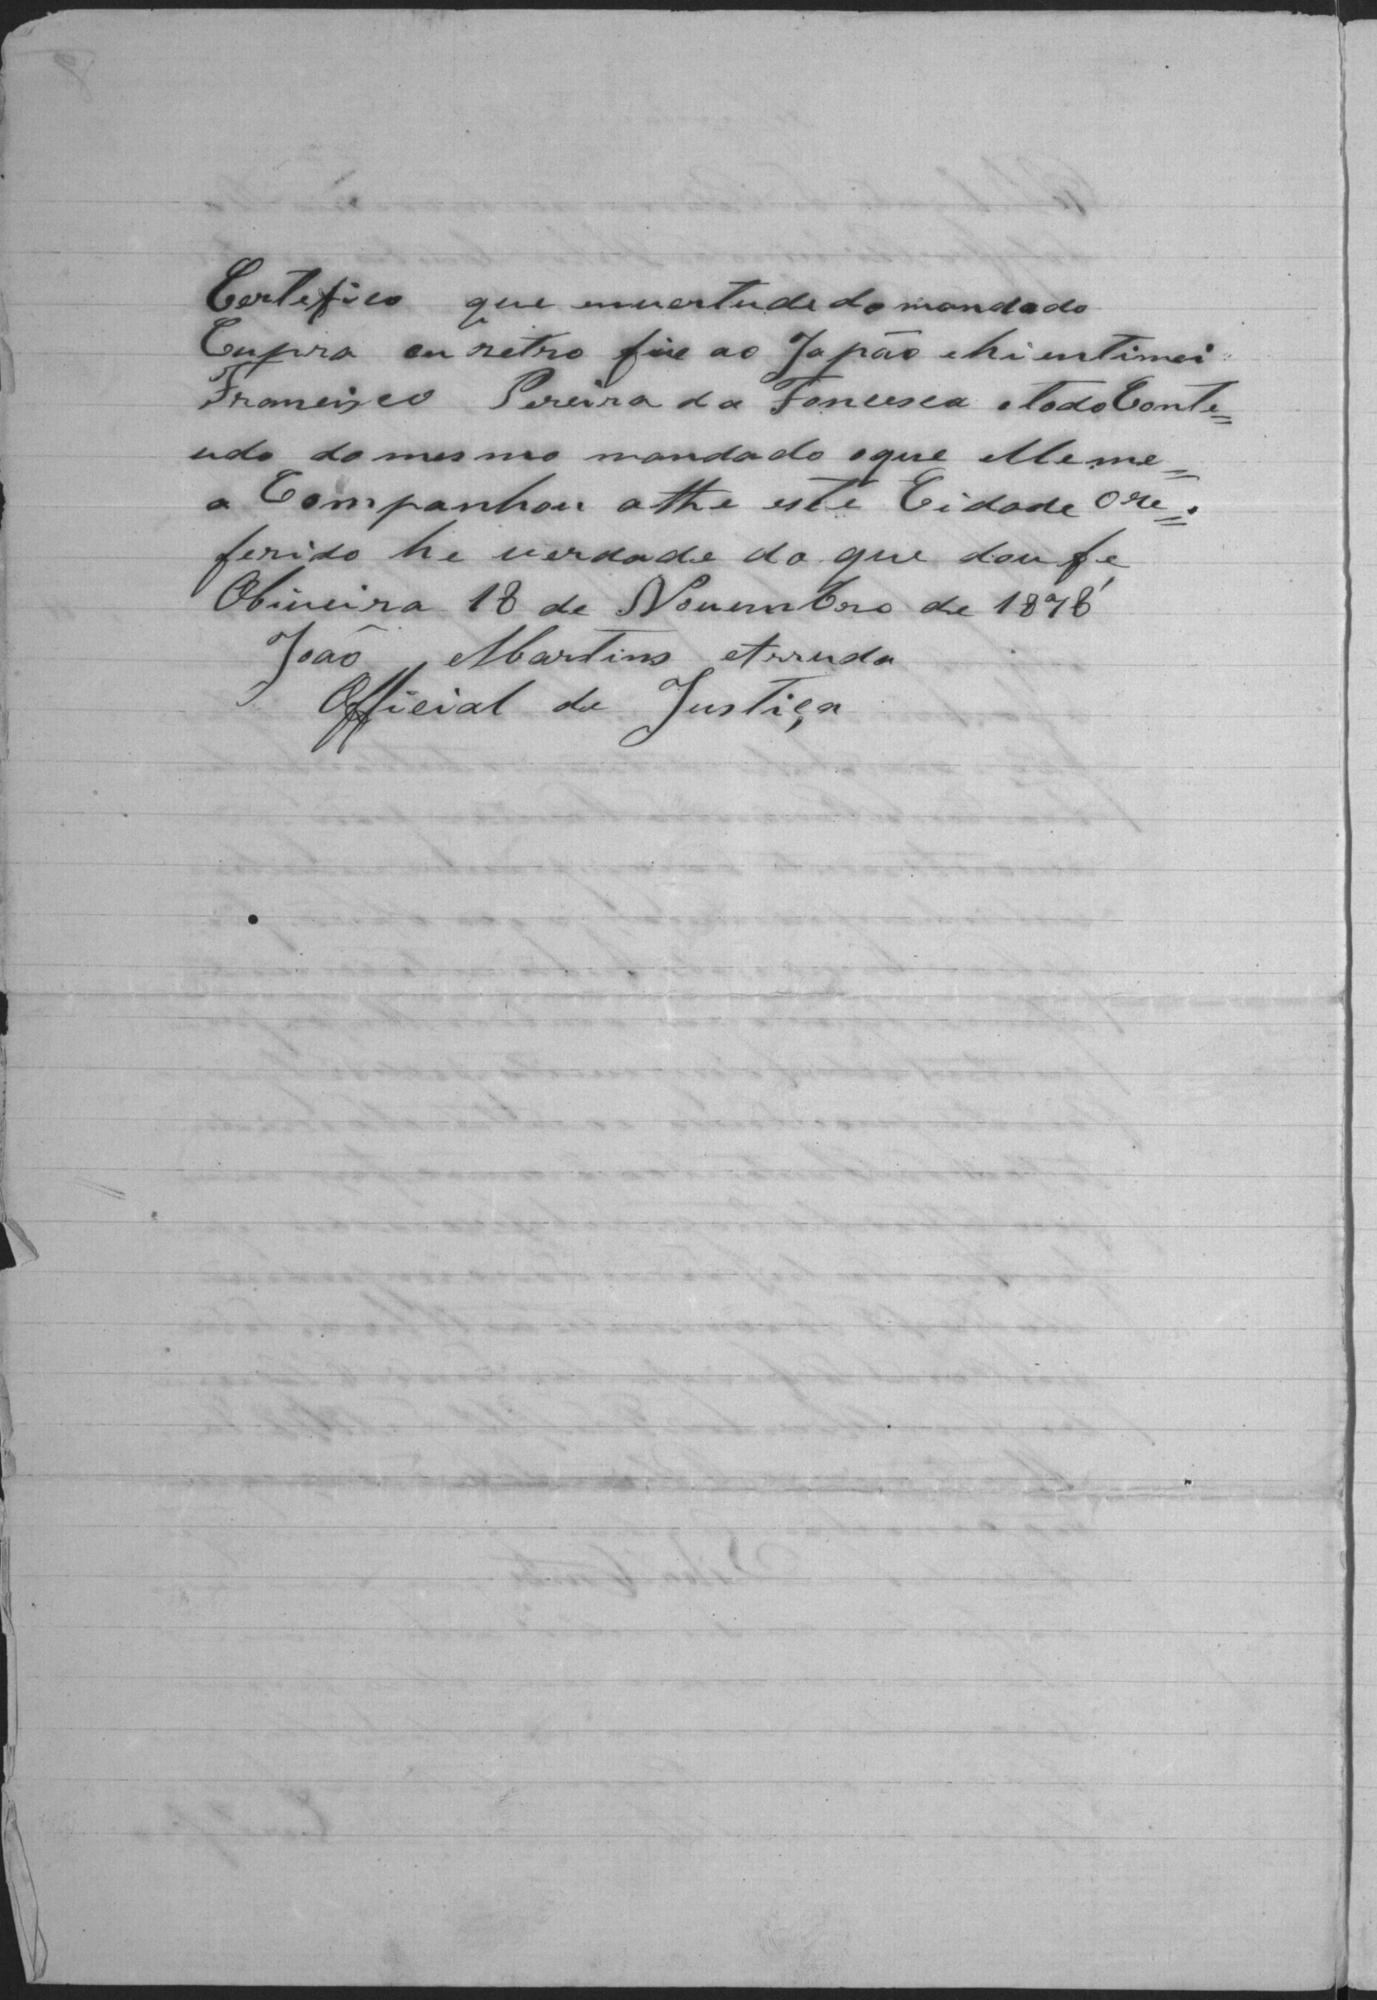 Certefico que emvertude do mandado
Cupra eu retro fui ao Japão e hi entimei
Francisco Pereira da Fonceca o todo Conte=
udo do mesmo mandado o que elle me=
a Companhou athe este Cidade o re=
ferido he verdade do que dou fe
Oliveira 18 de Novembro de 1878
João Martins Arruda
Official de Justiça